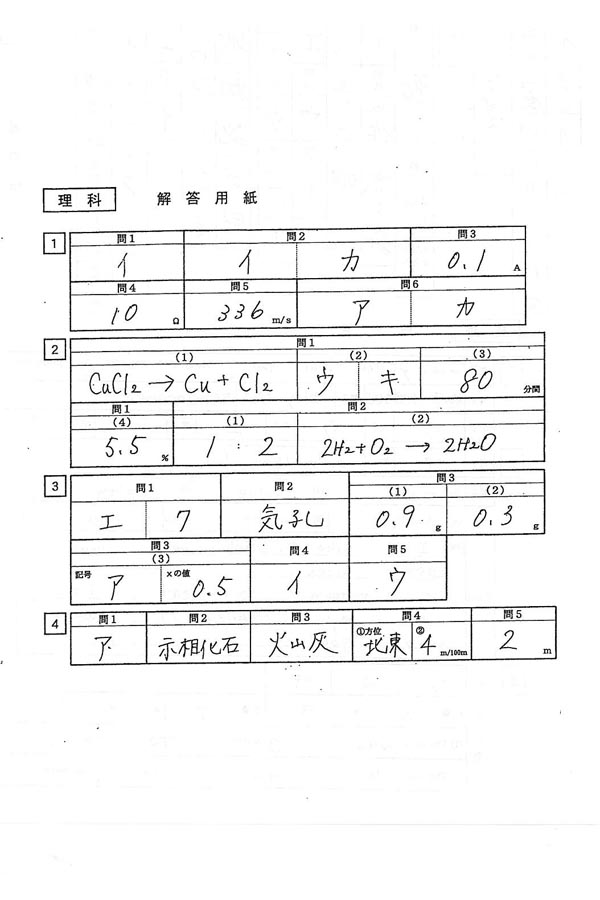 理科 解答用紙
1 問1 問2 問3
イ イ カ 0.1 A
問4 問5 問6
10 Ω 336 m/s ア カ
2 問1
(1) (2) (3)
CuCl2 → Cu + Cl2 ウ キ 80 分間
問1 問2
(4) (1) (2)
5.5 % 1 : 2 2H2+O2 → 2H2O
3 問1 問2 問3
(1) (2)
エ ク 気孔 0.9 g 0.3 g
問3 問4 問5
(3)
記号 ア xの値 0.5 イ ウ
4 問1 問2 問3 問4 問5
ア 示相化石 火山灰 ①方位 北東 ② 4 m/100m 2 m